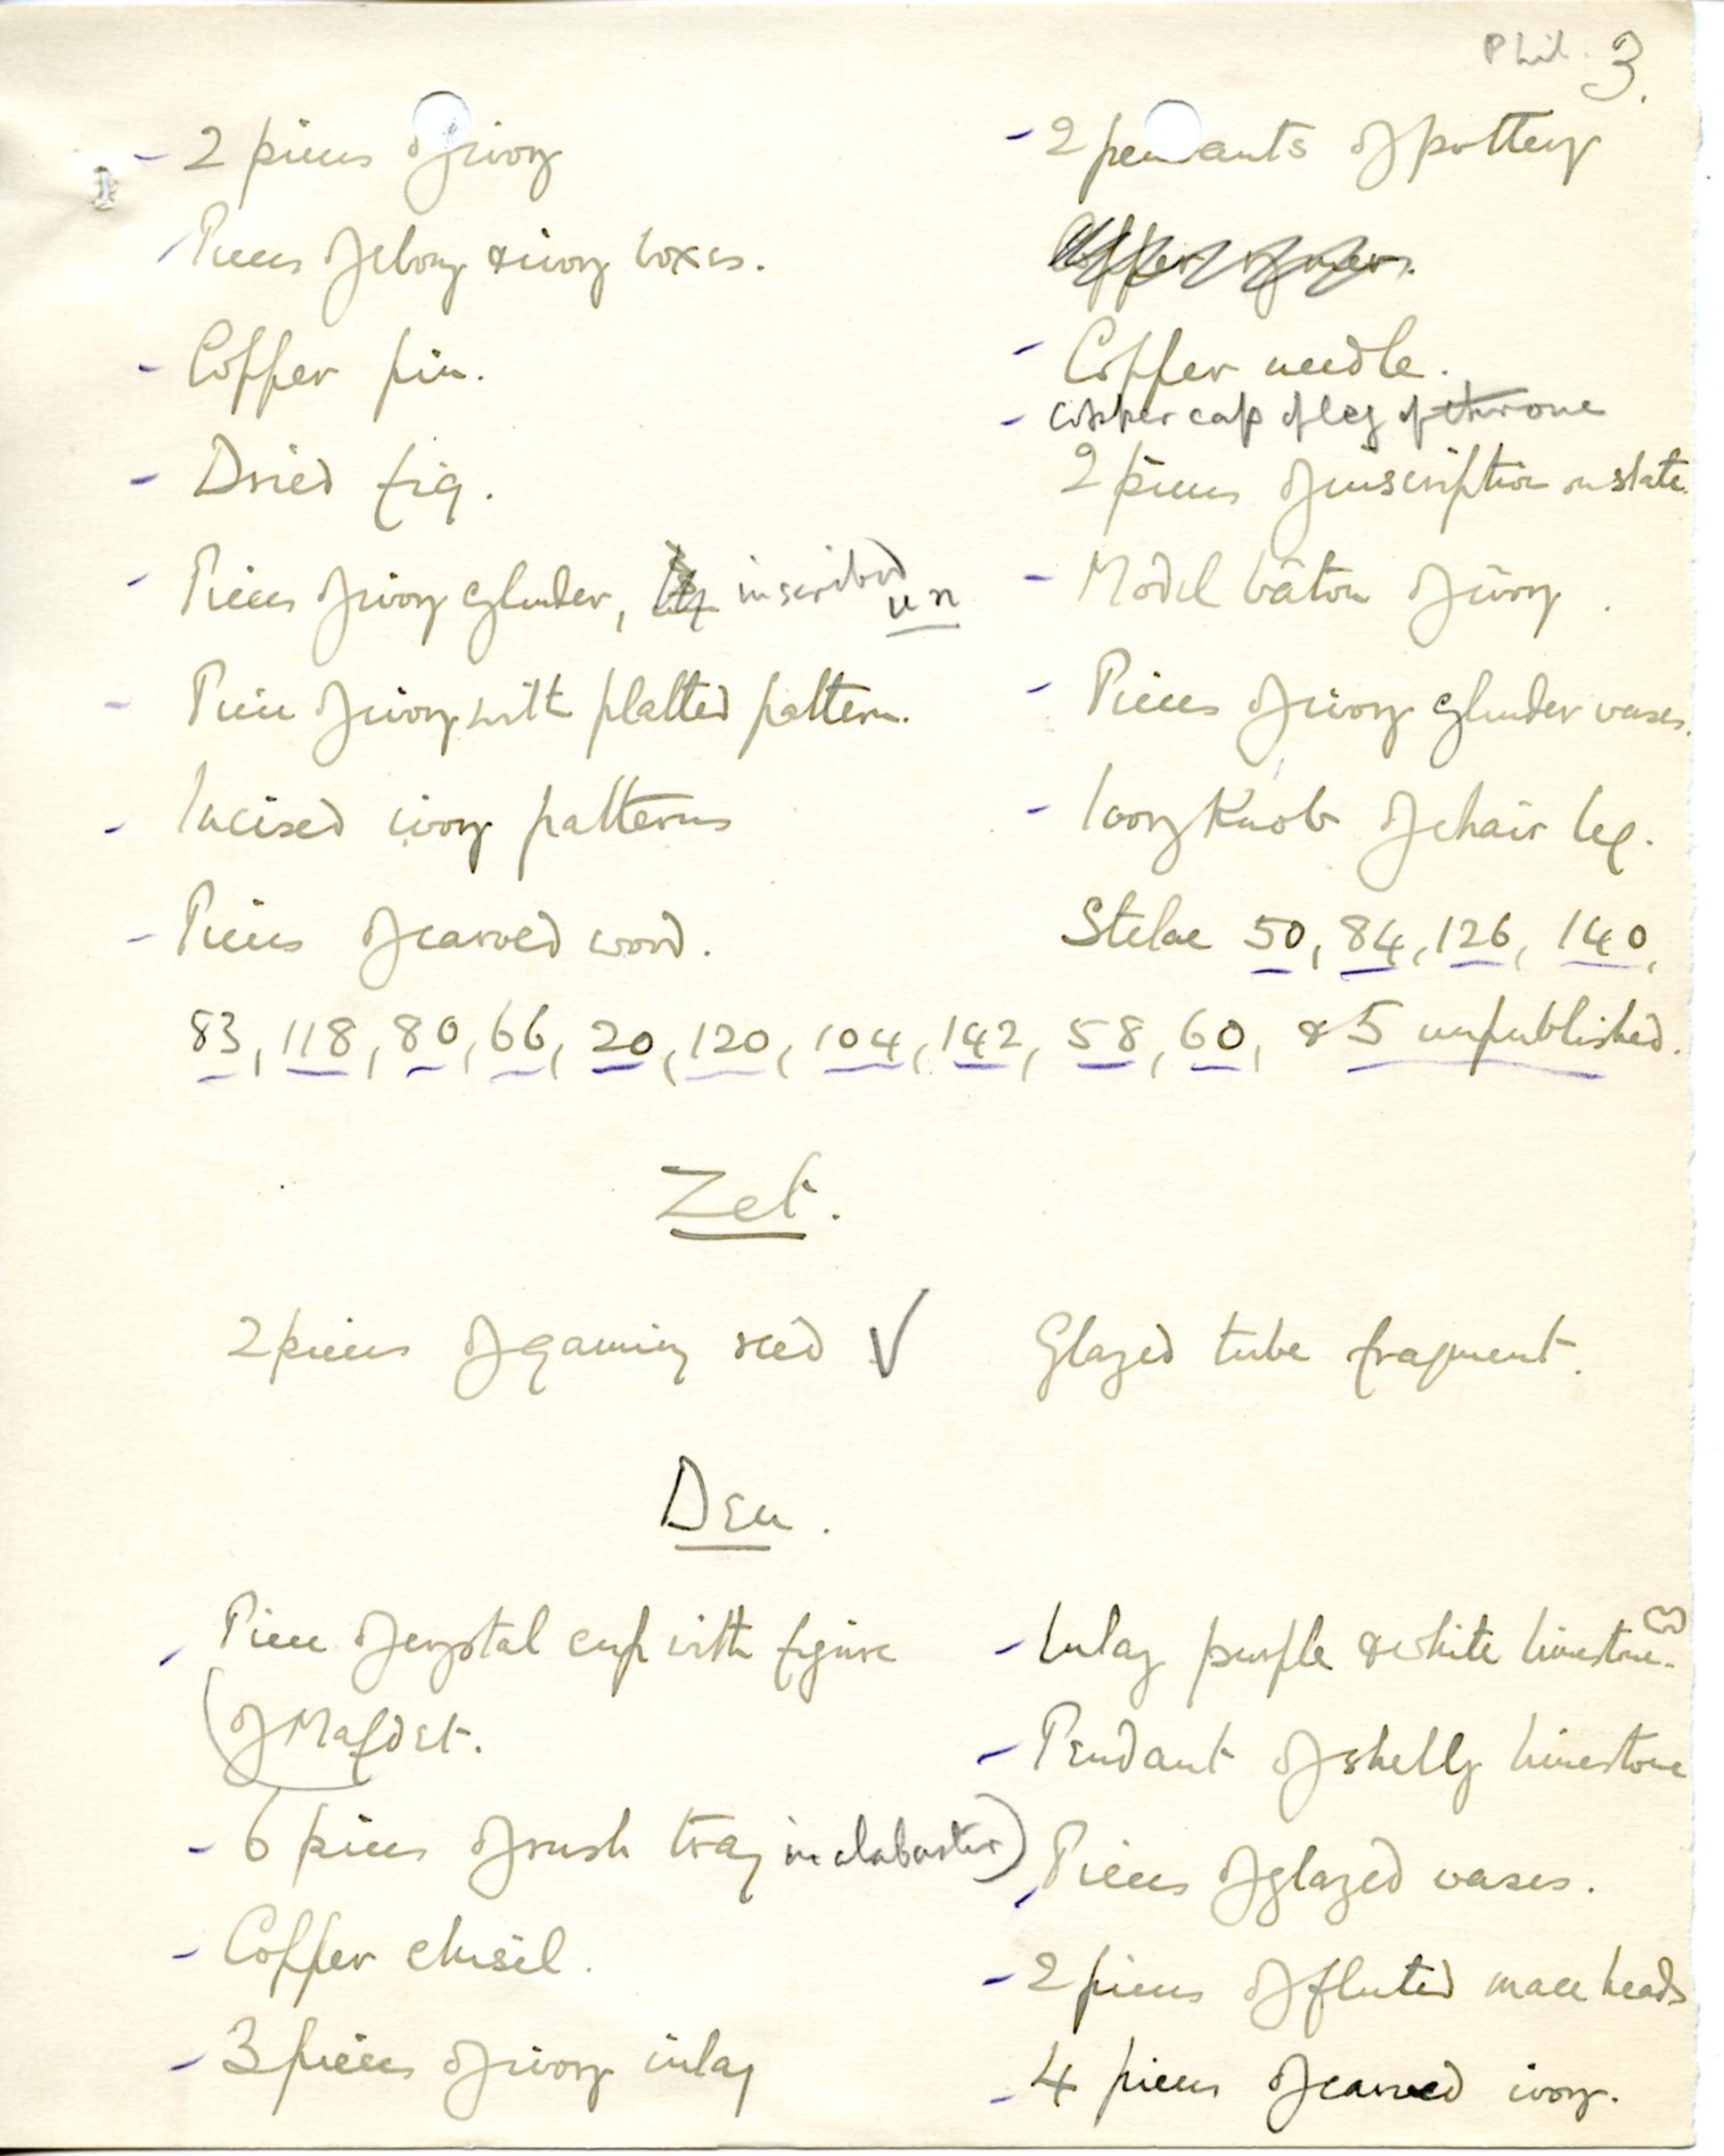 Phil. 3.
- 2 pieces of ivory
- Pieces of ebony & ivory boxes.
- Copper pin.
- Dried fig.
- Pieces of ivory cylinder, inscribed
- Piece of ivory with platted pattern.
- Incised ivory patterns
- Pieces of carved wood.
- 2 pendants of pottery
- Copper needle.
- copper cap of leg of throne
2 pieces of inscription on slate.
- Model bâton of ivory.
- Pieces of ivory cylinder vases.
- Ivory Knob of chair leg.
Stelae 50, 84, 126, 140,
83, 118, 80, 66, 20, 120, 104, 142, 58, 60, & 5 unpublished.
Zet.
2 pieces of gaming reed ✓
Glazed tube fragment.
Den.
- Piece of crystal cup with figure
(of Mafdet.
- 6 pieces of rush tray in alabaster)
- Copper chisel.
- 3 pieces of ivory inlay
- Inlay purple & white limestone.
- Pendant of shelly limestone
- Pieces of glazed vases.
- 2 pieces of fluted mace heads
- 4 pieces of carved ivory.